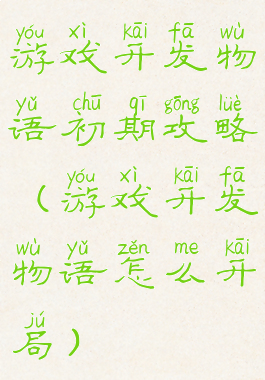 yóu xì kāi fā wù
游戏开发物
yǔ chū qī gōng lüè
语初期攻略
yóu xì kāi fā
（游戏开发
wù yǔ zěn me kāi
物语怎么开
jú
局）